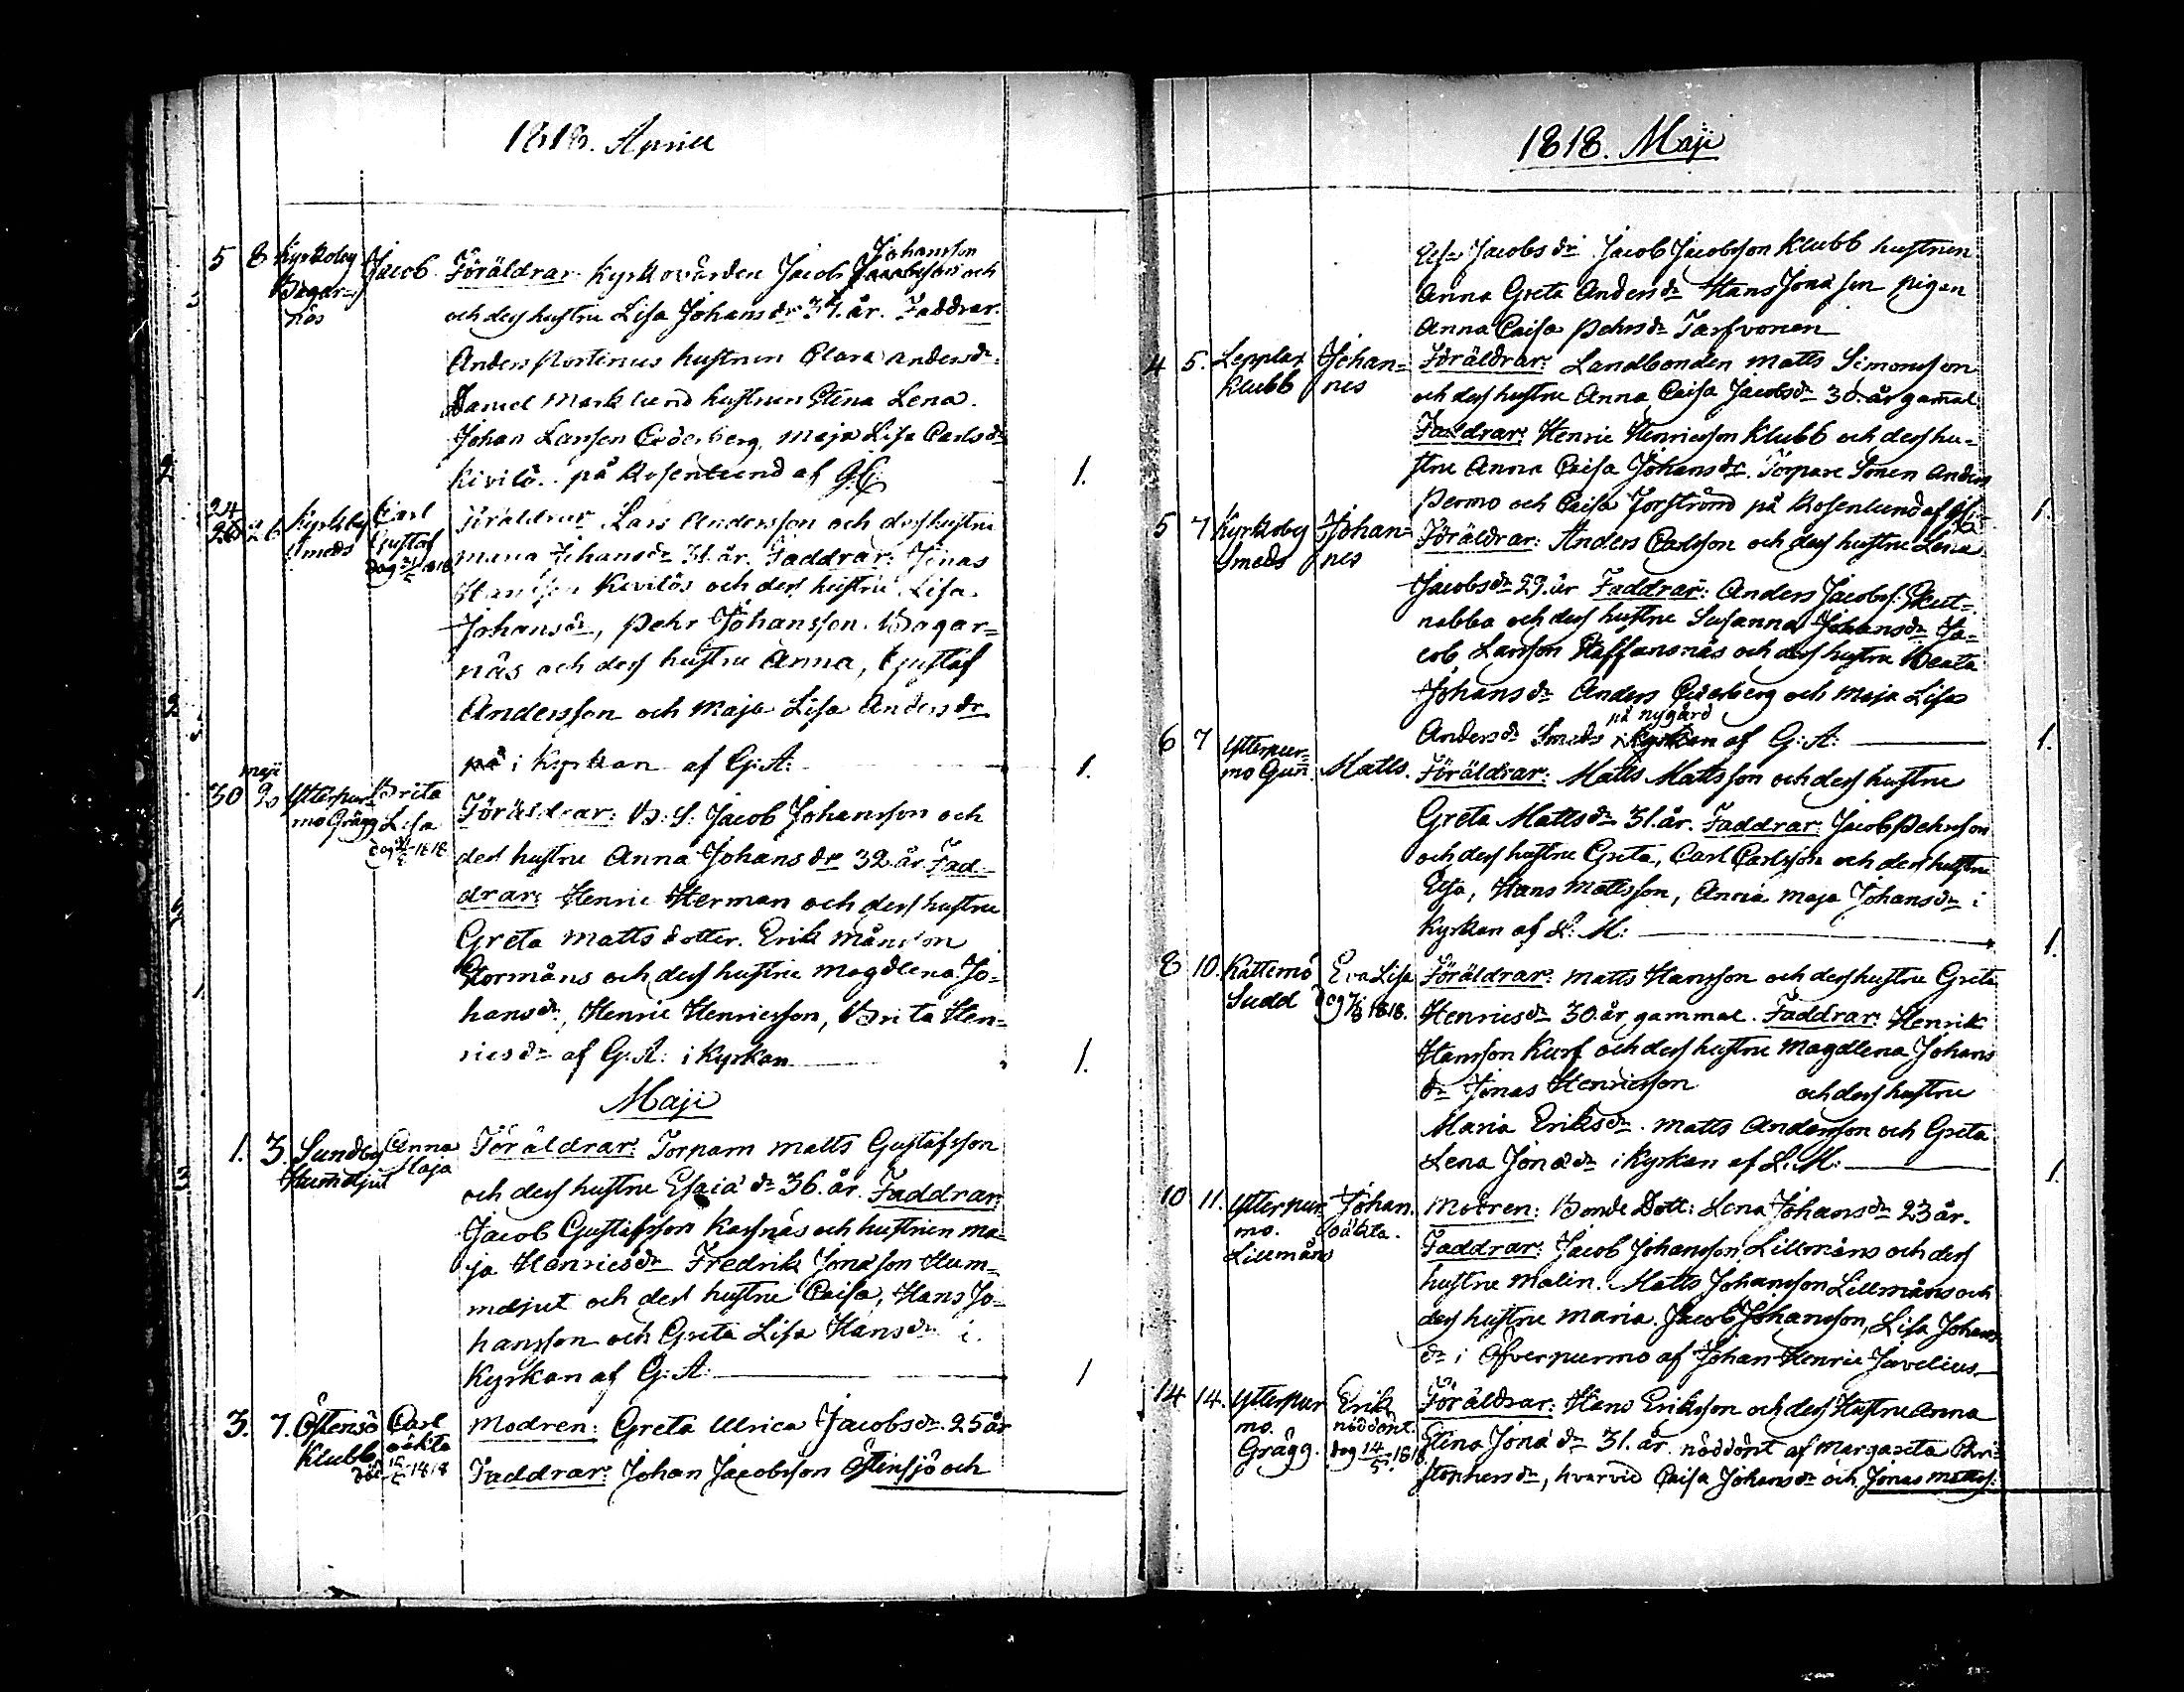 1818. Aprill
5 8 Kyrkoby Jacob. Föräldrar: Kyrkovärden Jacob Jacobsson och
Johansson
Bagar=
näs
och dess hustru Lisa Johans dr 34. år. Faddrar.
Anders Mortinus hustrun Clara Anders dr
Daniel Marklund hustrun Stina Lena.
Johan Larsson Cederberg, Maja Lisa Carls dr
Kivilö.. på Rosenlund af G.C. 1.
24
26 26 Kyrkby Carl Föräldrar Lars Andersson och dess hustru
Smeds Gustaf
dog 1818
Maria Johans dr 31. år. Faddrar: Jonas
Hansson Kivilös och dess hustru Lisa
Johans dr, Pehr Johansson Bagar=
näs och dess hustru Anna, Gustaf
Andersson och Maja Lisa Anders dr
på i Kyrkan af G:A: 1.
maji
30 Ytterpur= Brita Föräldrar: B: S: Jacob Johansson och
mo Grägg Lisa
dog 1818
dess hustru Anna Johans dr 32 år. Fad=
drar: Henric Herman och dess hustru
Greta Matts dotter. Erik Månsson
Stormåns och dess hustru Magdlena Jo=
hans dr, Henric Henricsson, Brita Hen=
rics dr af G:A: i Kyrkan 1.
Maji
1. 3. Sundby Anna Föräldrar: Torparn Matts Gustafsson
Humdjut Caja
och dess hustru Esaia dr 36. år. Faddrar:
Jacob Gustafsson Kasnäs och hustrun Ma=
ja Henrics dr Fredrik Jonasson Hum=
mdjut och dess hustru Caisa, Hans Jo=
hansson och Greta Lisa Hans dr i
Kyrkan af G:A: 1
3. 7. Östensö Carl Modren: Greta Ulrica Jacobs dr 25 år
Klubb oäkta
död 1818
Faddrar: Johan Jacobsson Östensjö och
1818. Maji
Jacobs dr Jacob Jacobsson Klubb hustrun
Anna Greta Anders dr Hans Jonasson pigan
Anna Caisa Pehrs dr Tarfvonen
4 5. Lepplax Johan= Föräldrar: Landbonden Matts Simonsson
Klubb nes
och dess hustru Anna Caisa Jacobs dr 30. år gamal.
Faddrar: Henric Henricsson Klubb och dess hu=
stru Anna Caisa Johans dr. Torpare Sonen Anders
Permo och Caisa Forström på Rosenlund af 1.
5 7 Kyrkoby Johan= Föräldrar: Anders Carlsson och dess hustru Lena
Smeds nes
Jacobs dr 29. år Faddrar: Anders Jacobs: Skut=
nabba och dess hustru Susanna Johans dr Ja=
cob Larsson Staffansnäs och dess hustru Beata
Johans dr Anders Cederberg och Maja Lisa
på nygård
Anders dr Smeds i Kyrkan af G:A: 1.
6 7 Ytterpur= Matts. Föräldrar: Matts Mattsson och dess hustru
mo Gun
Greta Matts dr 31. år. Faddrar: Jacob Pehrsson
och dess hustru Greta, Carl Carlsson och dess hustru
Elsa, Hans Mattsson, Anna Maja Johans dr i
Kyrkan af L: M: 1.
8 10. Kattemo Eva Lisa Föräldrar: Matts Hansson och dess hustru Greta
Sudd dog 1818.
Henrics dr 30. år gammal. Faddrar: Henrik
Hansson Kurf och dess hustru Magdlena Johans
dr Jonas Henricsson och dess hustru
Maria Eriks dr. Matts Andersson och Greta
Lena Jona dr i Kyrkan af L: M: 1.
10 11. Ytterpur Johan. Modren: Bonde Dott: Lena Johans dr 23 år.
mo. oäkta.
Lillmåns
Faddrar: Jacob Johansson Lillmåns och dess
hustru Malin. Matts Johansson Lillmåns och
dess hustru Maria. Jacob Johansson, Lisa Johans
dr i Öfverpurmo af Johan Henric Javelius
14 14. Ytterpur Erik Föräldrar: Hans Eriksson och dess Hustru Anna
mo. nöddöpt.
Grägg. dog 14/5 1818.
Stina Jona dr 31. år. nöddöpt af Margareta Chri=
stophers dr, hvarvid Caisa Johans dr och Jonas Mattss: